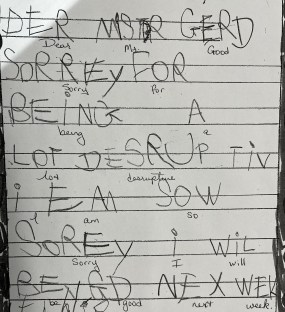 DER MSTR GERD
Dear Mr. Good
SORREY FOR
Sorry for
BEING A
being a
LOT DESRUPTIV
lot desruptive
i EAM SOW
I am so
SOREY i WiL
Sorry I will
BEY GD NEX WEK
be good next week.